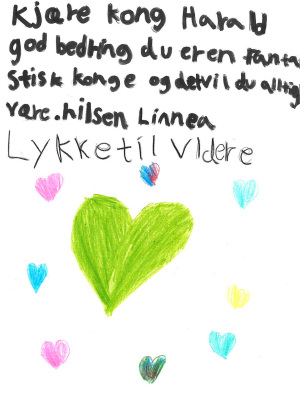 Kjære kong Harald
god bedring du er en fanta
Stisk konge og det vil du alltig
være. hilsen Linnea
Lykke til Videre